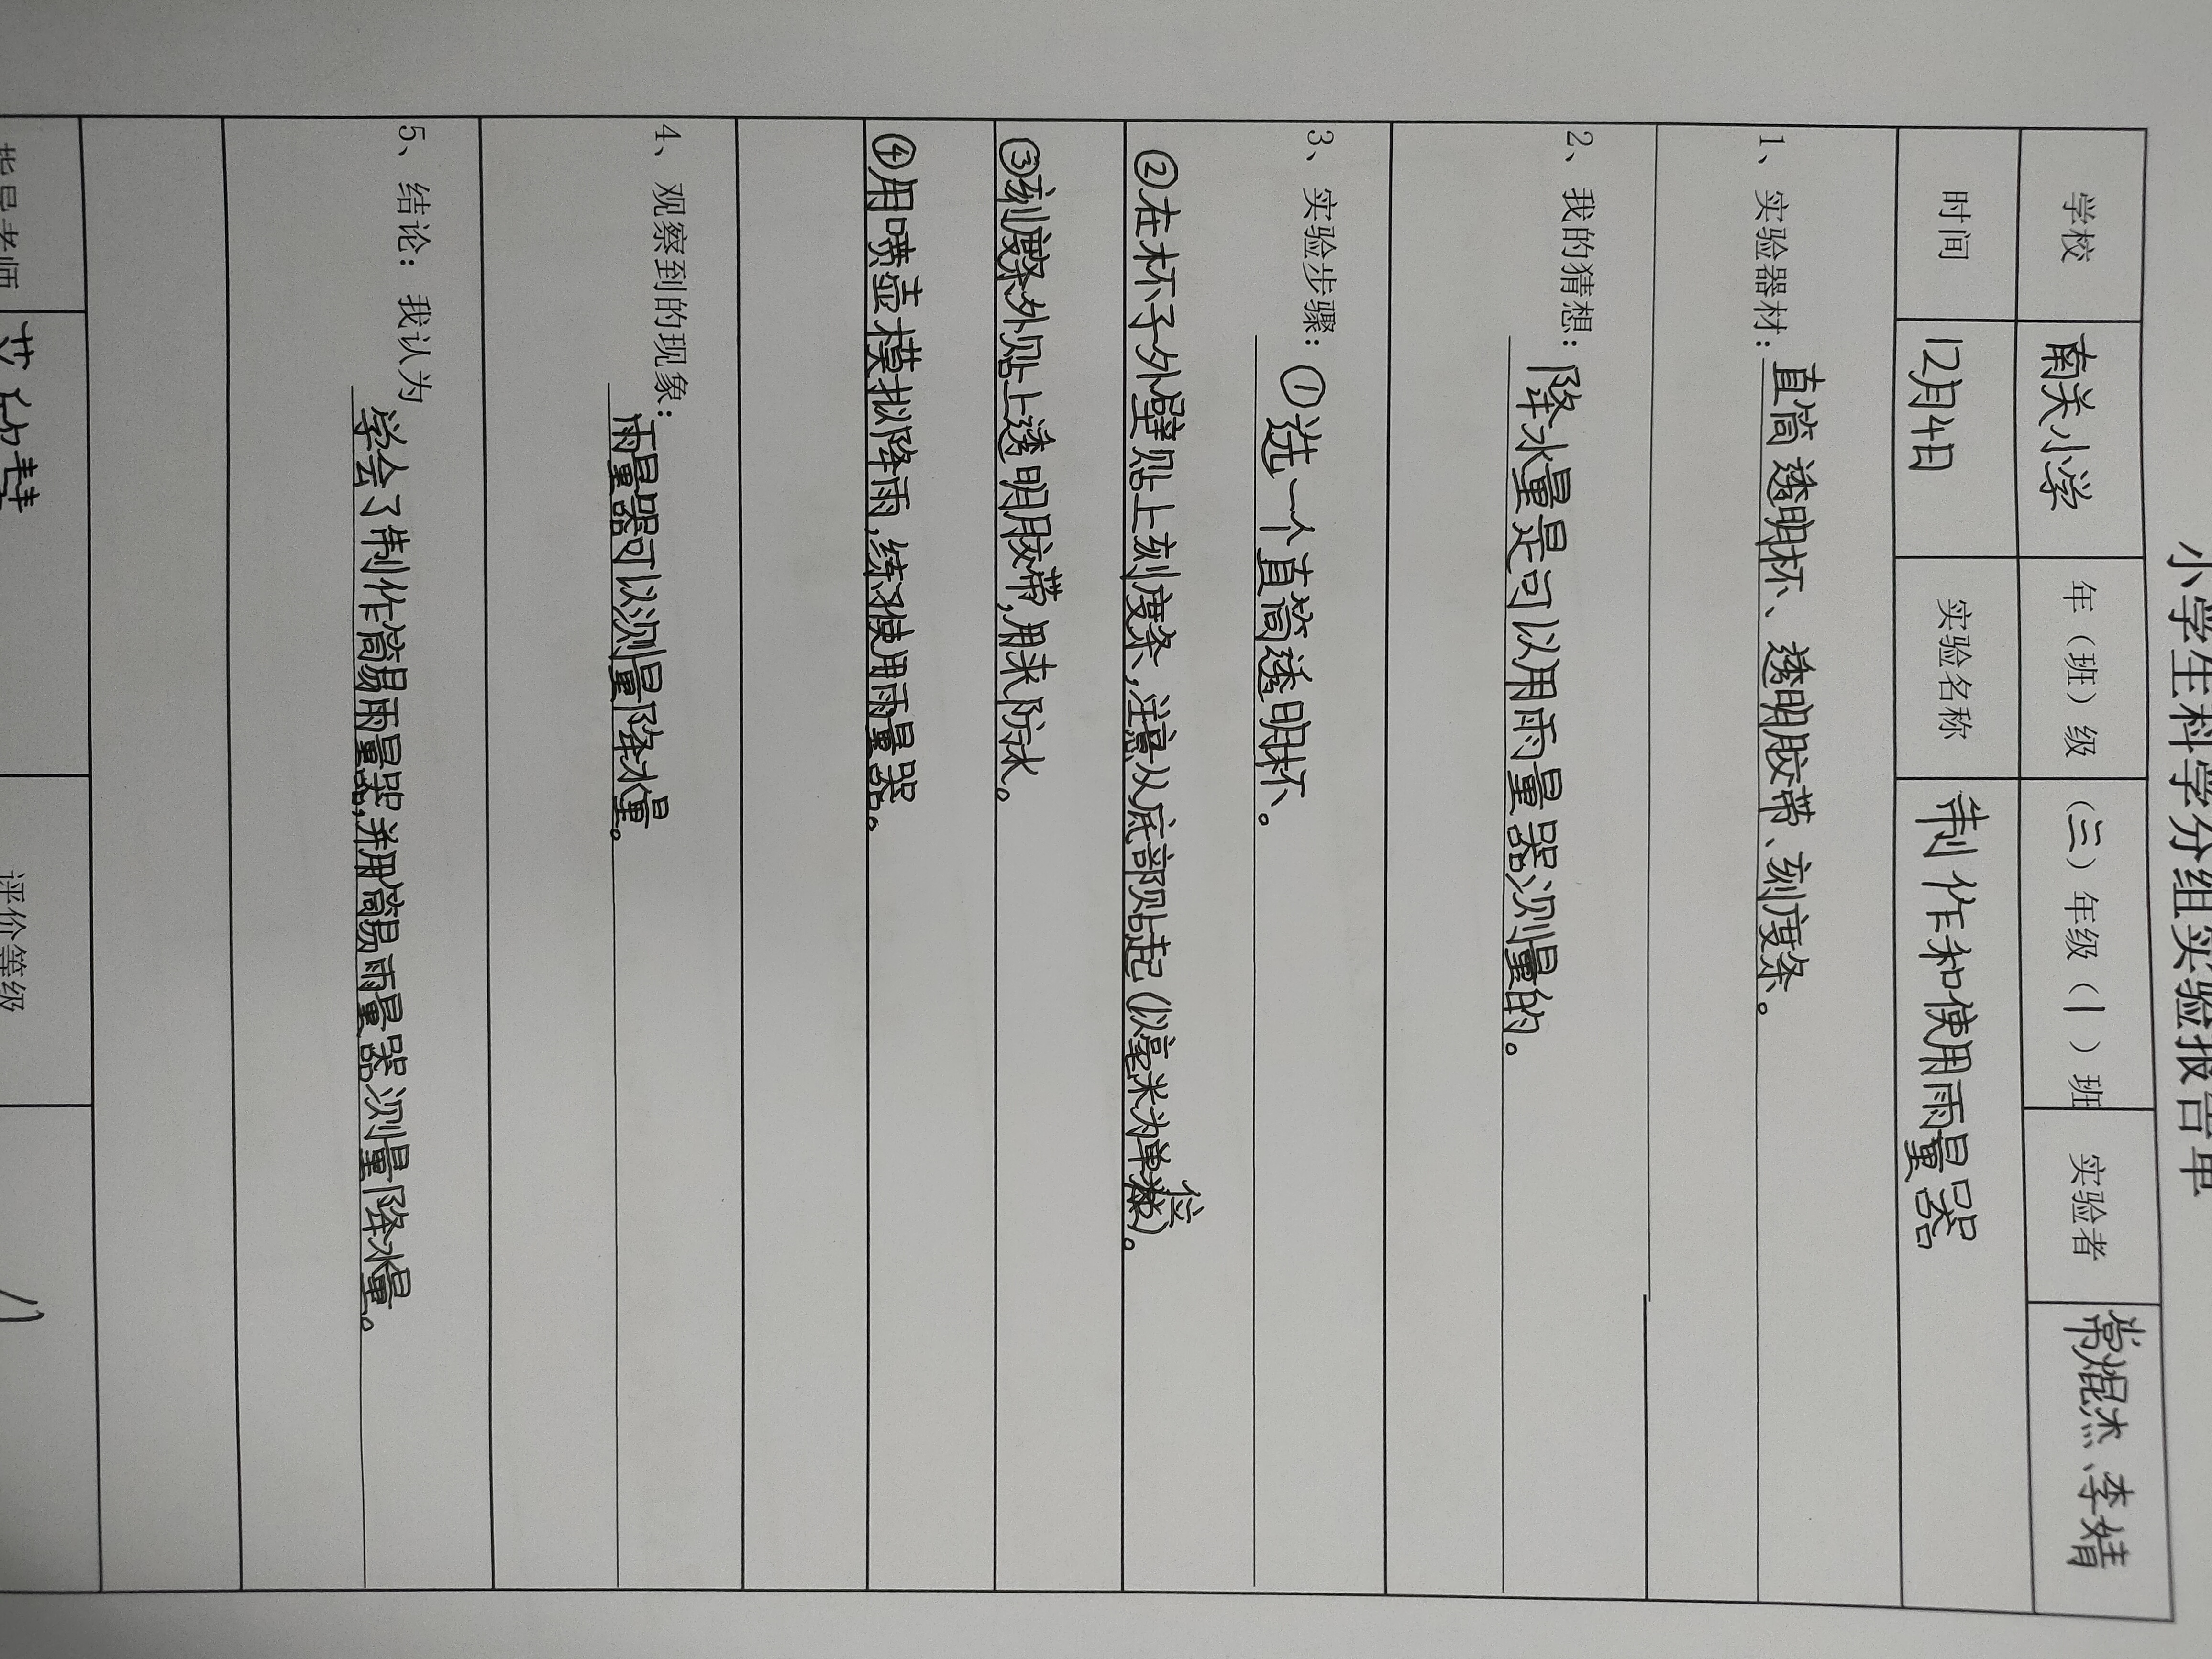 小学生科学分组实验报告单
学校 南关小学 年（班）级 （三）年级（1）班 实验者 常焜杰、李婧
时间 12月4日 实验名称 制作和使用雨量器
1、实验器材：直筒透明杯、透明胶带、刻度条。
2、我的猜想：降水量是可以用雨量器测量的。
3、实验步骤：①选一个直筒透明杯。
②在杯子外壁贴上刻度条，注意从底部贴起（以毫米为单位）。
③刻度条外贴上透明胶带，用来防水。
④用喷壶模拟降雨，练习使用雨量器。
4、观察到的现象：雨量器可以测量降水量。
5、结论：我认为 学会了制作简易雨量器，并用简易雨量器测量降水量。
指导老师 评价等级